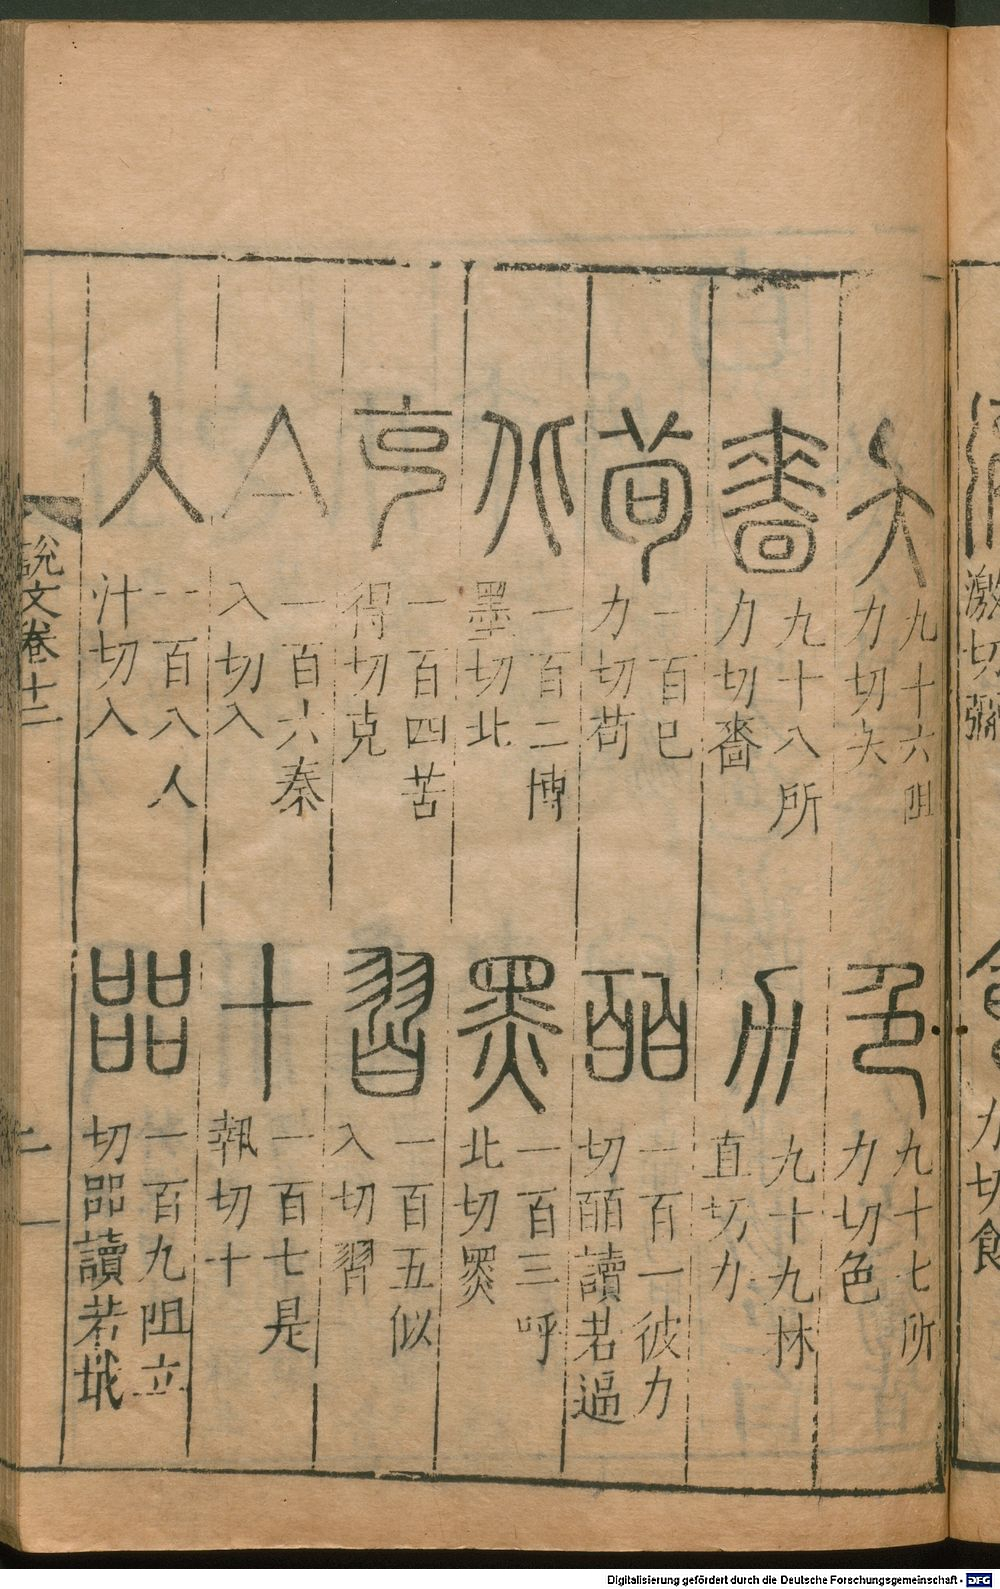 九十六阻
力切夨
九十七所
力切色
九十八所
力切嗇
九十九林
直切力
一百已
力切茍
一百一彼力
切皕讀若逼
一百二博
墨切北
一百三呼
北切黑
一百四苦
得切克
一百五似
入切習
一百六秦
入切亼
一百七是
執切十
一百八人
汁切入
一百九阻立
切㗊讀若戢
說文卷十二
二
激切彌
力切飤
Digitalisierung gefördert durch die Deutsche Forschungsgemeinschaft - DFG